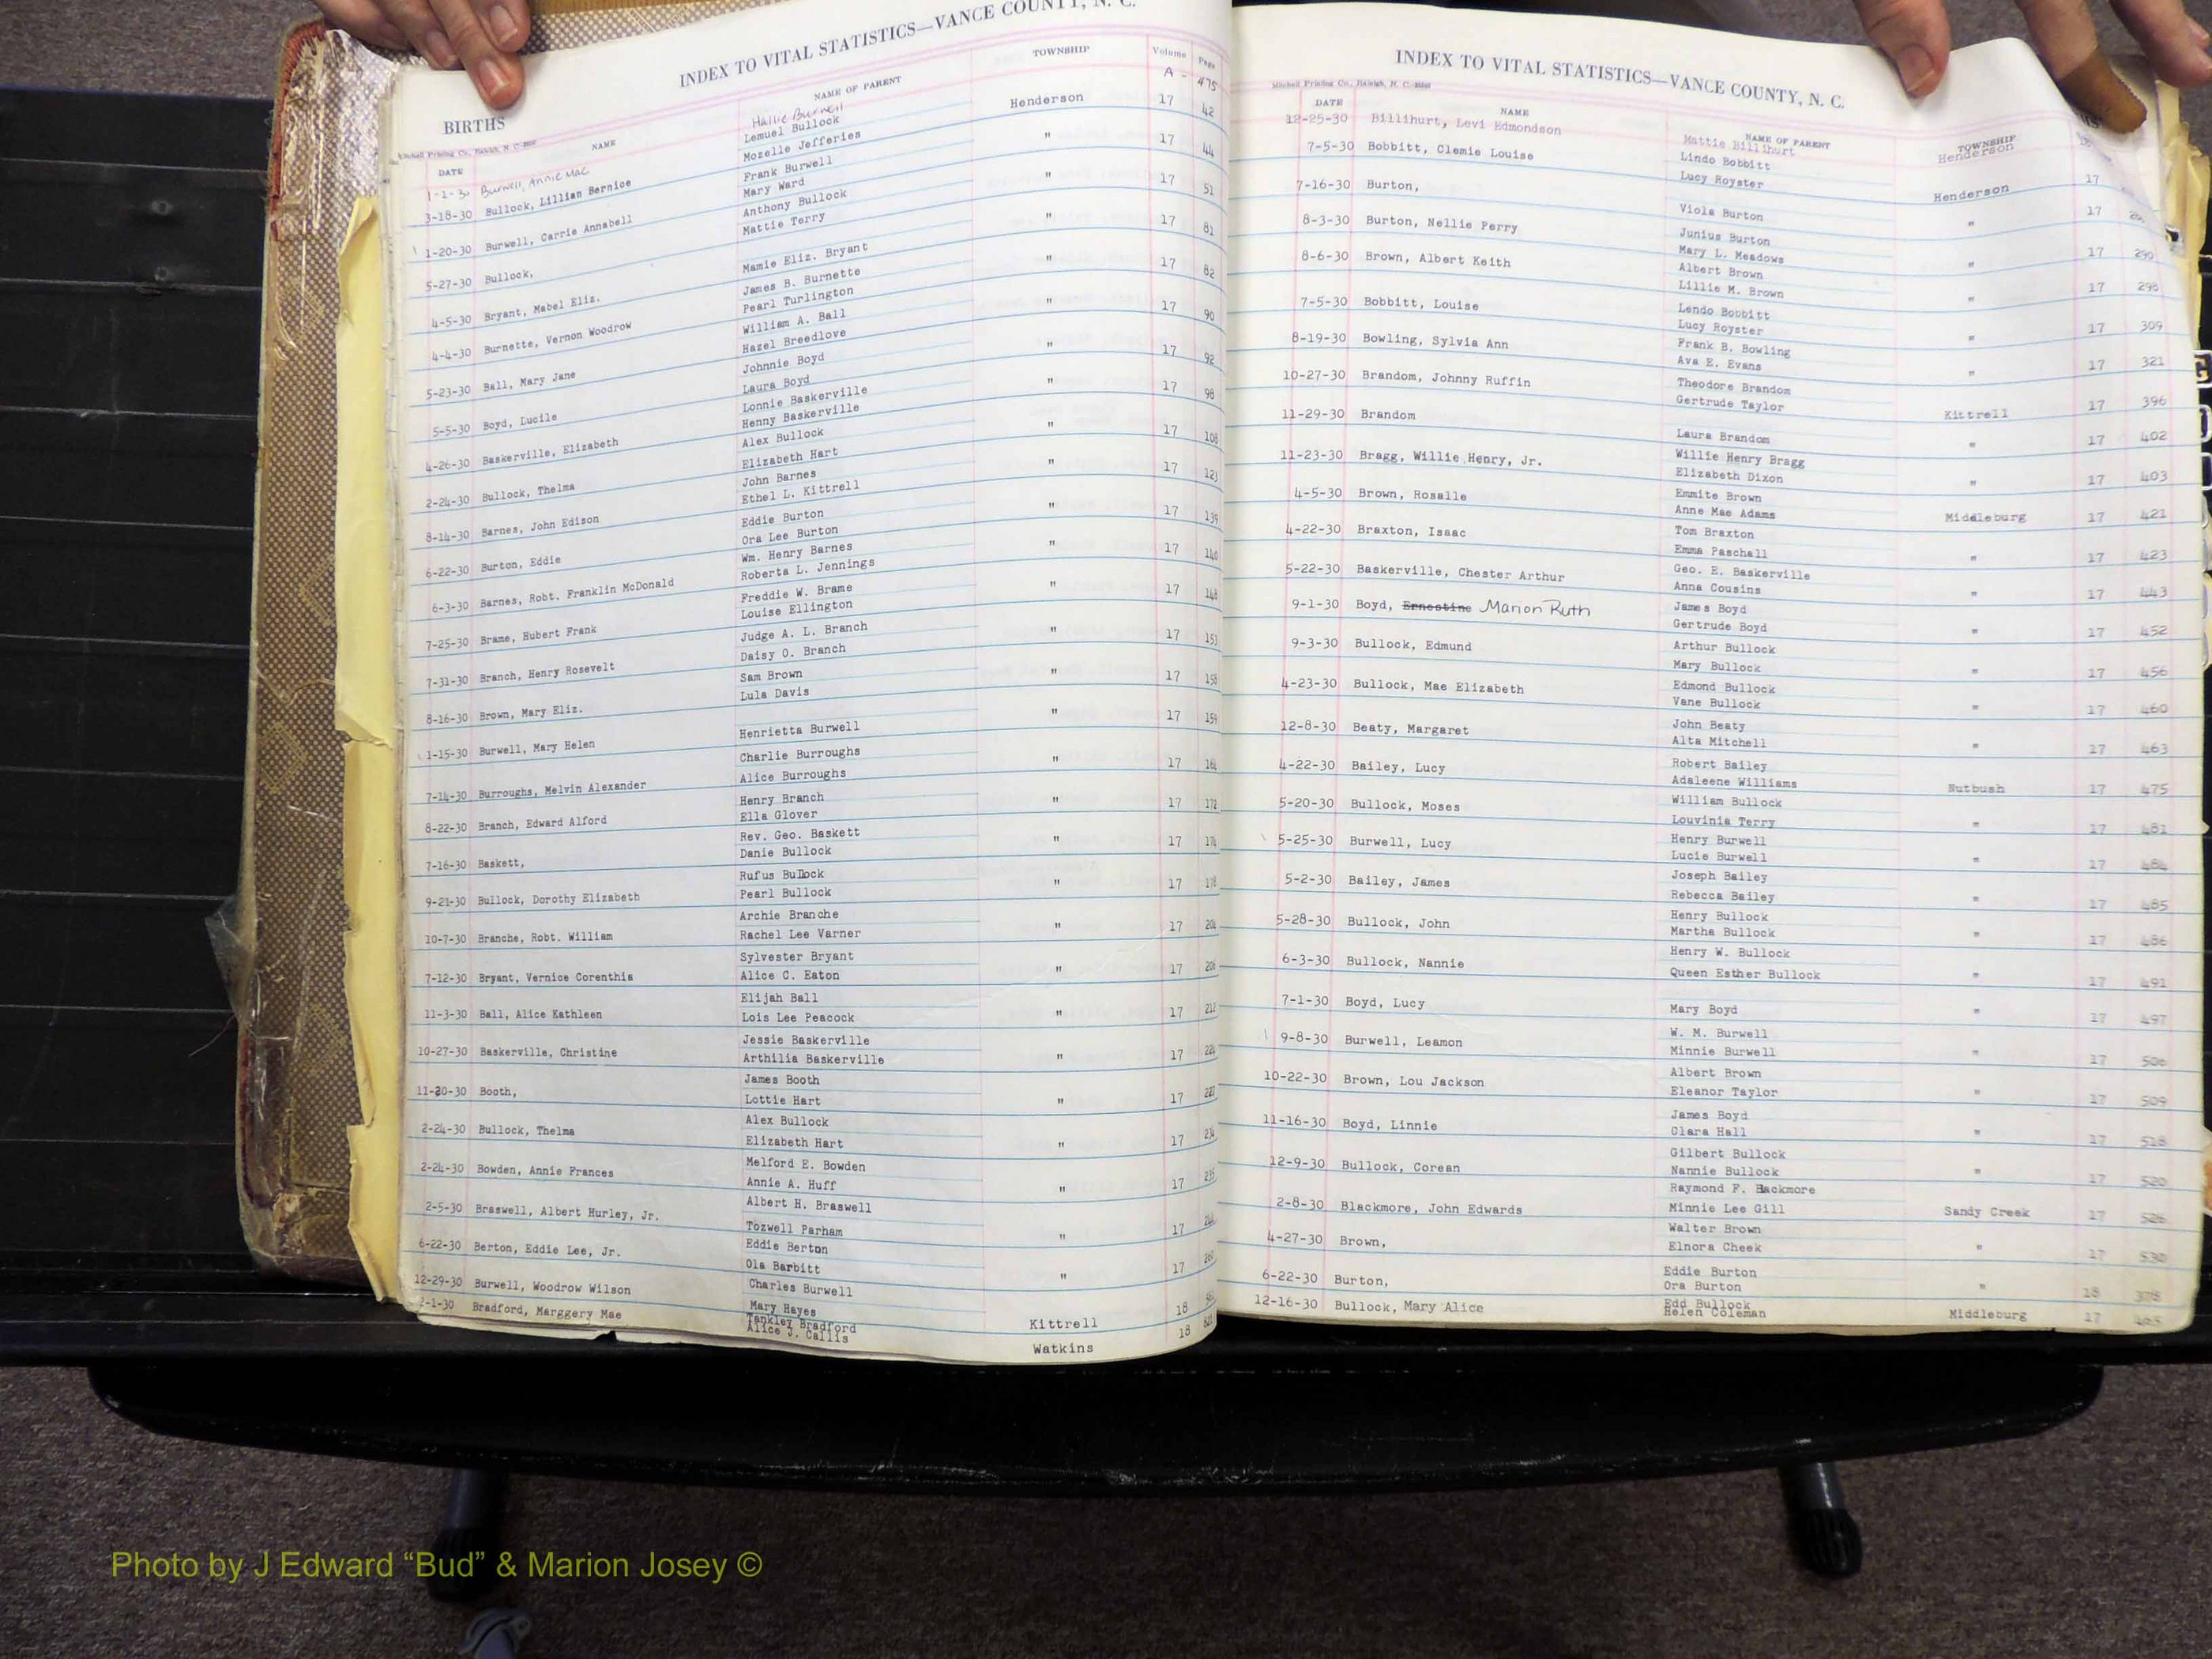 INDEX TO VITAL STATISTICS—VANCE COUNTY, N. C.
BIRTHS
Mitchell Printing Co., Raleigh, N. C.
DATE NAME NAME OF PARENT TOWNSHIP Volume Page
1-2-30 Burwell, Annie Mae Hallie Burwell A - 475
3-18-30 Bullock, Lillian Bernice Lemuel Bullock Henderson 17 42
Mozelle Jefferies
1-20-30 Burwell, Carrie Annabell Frank Burwell " 17 44
Mary Ward
5-27-30 Bullock, Anthony Bullock " 17 51
Mattie Terry
4-5-30 Bryant, Mabel Eliz. Mamie Eliz. Bryant " 17 81
4-4-30 Burnette, Vernon Woodrow James B. Burnette " 17 82
Pearl Turlington
5-23-30 Ball, Mary Jane William A. Ball " 17 90
Hazel Breedlove
5-5-30 Boyd, Lucile Johnnie Boyd " 17 92
Laura Boyd
4-26-30 Baskerville, Elizabeth Lonnie Baskerville " 17 98
Henny Baskerville
2-24-30 Bullock, Thelma Alex Bullock " 17 108
Elizabeth Hart
8-14-30 Barnes, John Edison John Barnes " 17
Ethel L. Kittrell
6-22-30 Burton, Eddie Eddie Burton " 17 139
Ora Lee Burton
6-3-30 Barnes, Robt. Franklin McDonald Wm. Henry Barnes " 17 140
Roberta L. Jennings
7-25-30 Brame, Hubert Frank Freddie W. Brame " 17
Louise Ellington
7-31-30 Branch, Henry Rosevelt Judge A. L. Branch " 17 153
Daisy O. Branch
8-16-30 Brown, Mary Eliz. Sam Brown " 17
Lula Davis
1-15-30 Burwell, Mary Helen Henrietta Burwell " 17 159
7-14-30 Burroughs, Melvin Alexander Charlie Burroughs " 17
Alice Burroughs
8-22-30 Branch, Edward Alford Henry Branch " 17 172
Ella Glover
7-16-30 Baskett, Rev. Geo. Baskett " 17
Danie Bullock
9-21-30 Bullock, Dorothy Elizabeth Rufus Bullock " 17
Pearl Bullock
10-7-30 Branche, Robt. William Archie Branche " 17
Rachel Lee Varner
7-12-30 Bryant, Vernice Corenthia Sylvester Bryant " 17
Alice C. Eaton
11-3-30 Ball, Alice Kathleen Elijah Ball " 17 212
Lois Lee Peacock
10-27-30 Baskerville, Christine Jessie Baskerville " 17
Arthilia Baskerville
11-20-30 Booth, James Booth " 17
Lottie Hart
2-24-30 Bullock, Thelma Alex Bullock " 17
Elizabeth Hart
2-24-30 Bowden, Annie Frances Melford E. Bowden " 17
Annie A. Huff
2-5-30 Braswell, Albert Hurley, Jr. Albert H. Braswell " 17
Tozwell Parham
6-22-30 Berton, Eddie Lee, Jr. Eddie Berton " 17
Ola Barbitt
12-29-30 Burwell, Woodrow Wilson Charles Burwell Kittrell 18
Mary Hayes
2-1-30 Bradford, Marggery Mae Tankley Bradford Watkins 18
Alice J. Callis
INDEX TO VITAL STATISTICS—VANCE COUNTY, N. C.
Mitchell Printing Co., Raleigh, N. C.
DATE NAME NAME OF PARENT TOWNSHIP
12-25-30 Billihurt, Levi Edmondson Mattie Billihurt Henderson
7-5-30 Bobbitt, Clemie Louise Lindo Bobbitt Henderson 17
Lucy Royster
7-16-30 Burton, Viola Burton " 17
8-3-30 Burton, Nellie Perry Junius Burton " 17 290
Mary L. Meadows
8-6-30 Brown, Albert Keith Albert Brown " 17 298
Lillie M. Brown
7-5-30 Bobbitt, Louise Lendo Bobbitt " 17 309
Lucy Royster
8-19-30 Bowling, Sylvia Ann Frank B. Bowling " 17 321
Ava E. Evans
10-27-30 Brandom, Johnny Ruffin Theodore Brandom Kittrell 17 396
Gertrude Taylor
11-29-30 Brandom Laura Brandom " 17 402
11-23-30 Bragg, Willie Henry, Jr. Willie Henry Bragg " 17 403
Elizabeth Dixon
4-5-30 Brown, Roselle Emmite Brown Middleburg 17 421
Anne Mae Adams
4-22-30 Braxton, Isaac Tom Braxton " 17 423
Emma Paschall
5-22-30 Baskerville, Chester Arthur Geo. E. Baskerville " 17 443
Anna Cousins
9-1-30 Boyd, Ernestine Marion Ruth James Boyd " 17 452
Gertrude Boyd
9-3-30 Bullock, Edmund Arthur Bullock " 17 456
Mary Bullock
4-23-30 Bullock, Mae Elizabeth Edmond Bullock " 17 460
Vane Bullock
12-8-30 Beaty, Margaret John Beaty " 17 463
Alta Mitchell
4-22-30 Bailey, Lucy Robert Bailey Nutbush 17 475
Adaleene Williams
5-20-30 Bullock, Moses William Bullock " 17 481
Louvinia Terry
5-25-30 Burwell, Lucy Henry Burwell " 17 484
Lucie Burwell
5-2-30 Bailey, James Joseph Bailey " 17 485
Rebecca Bailey
5-28-30 Bullock, John Henry Bullock " 17 486
Martha Bullock
6-3-30 Bullock, Nannie Henry W. Bullock " 17 491
Queen Esther Bullock
7-1-30 Boyd, Lucy Mary Boyd " 17 497
9-8-30 Burwell, Leamon W. M. Burwell " 17 506
Minnie Burwell
10-22-30 Brown, Lou Jackson Albert Brown " 17 509
Eleanor Taylor
11-16-30 Boyd, Linnie James Boyd " 17 518
Clara Hall
12-9-30 Bullock, Corean Gilbert Bullock " 17 520
Nannie Bullock
2-8-30 Blackmore, John Edwards Raymond F. Backmore Sandy Creek 17 526
Minnie Lee Gill
4-27-30 Brown, Walter Brown " 17 530
Elnora Cheek
6-22-30 Burton, Eddie Burton " 18 378
Ora Burton
12-16-30 Bullock, Mary Alice Edd Bullock Middleburg 17 465
Helen Coleman
Photo by J Edward “Bud” & Marion Josey ©